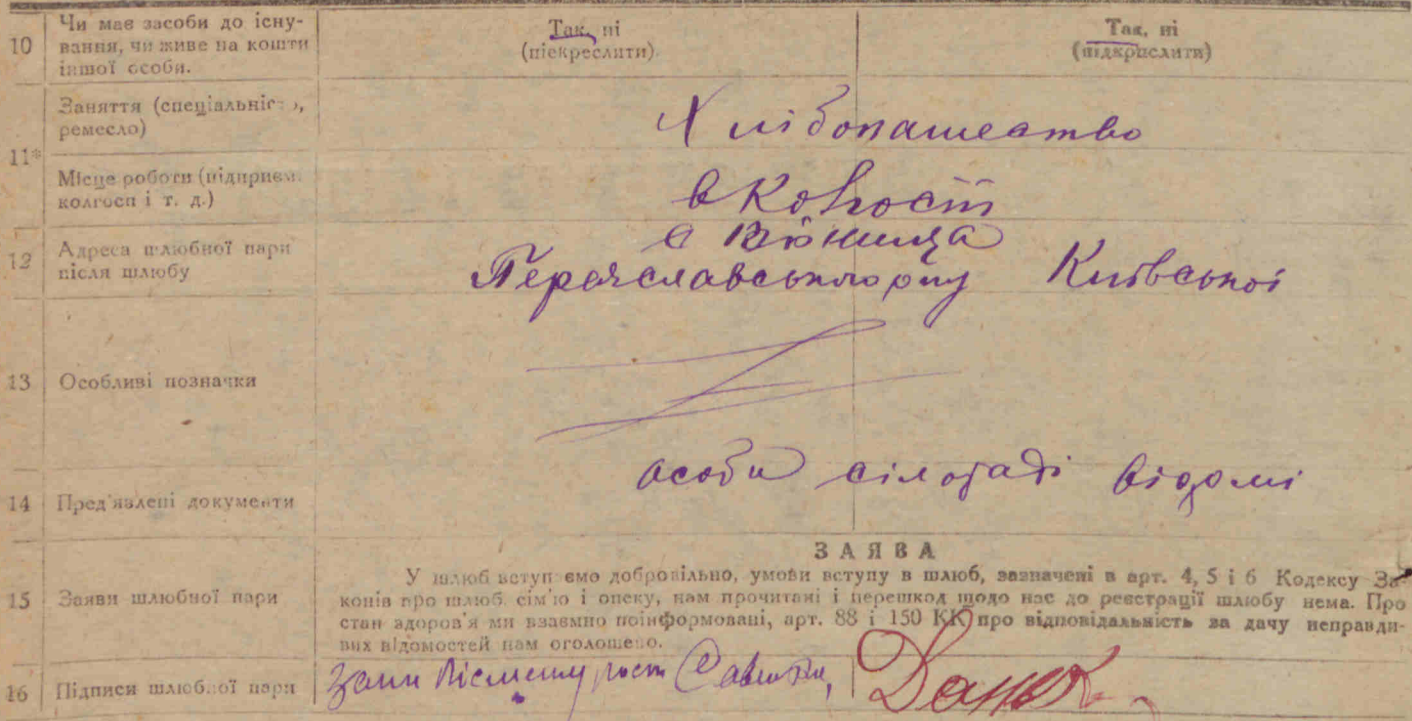 10 Чи має засоби до існу-
вання, чи живе на кошти
іншої особи.
Так, ні
(піекреслити)
Так, ні
(підкрислити)
11* Заняття (спеціальніс
ремесло)
Хлібопашество
Місце роботи (підприєм.
колгосп і т. д.)
в Колгоспі
12 Адреса шлюбної пари
після шлюбу
с Війниця
Переяславського р-ну Київської
13 Особливі позначки
14 Пред'явлені документи
особи сілораді відомі
15 Заяви шлюбної пари
ЗАЯВА
У шлюб вступ ємо добровільно, умови вступу в шлюб, зазначені в арт. 4, 5 і 6 Кодексу За-
конів про шлюб, сім'ю і опеку, нам прочитані і перешкод щодо нас до реєстрації шлюбу нема. Про
стан здоров'я ми взаємно поінформовані, арт. 88 і 150 КК про відповідальність за дачу неправди-
вих відомостей нам оголошено.
16 Підписи шлюбної пари